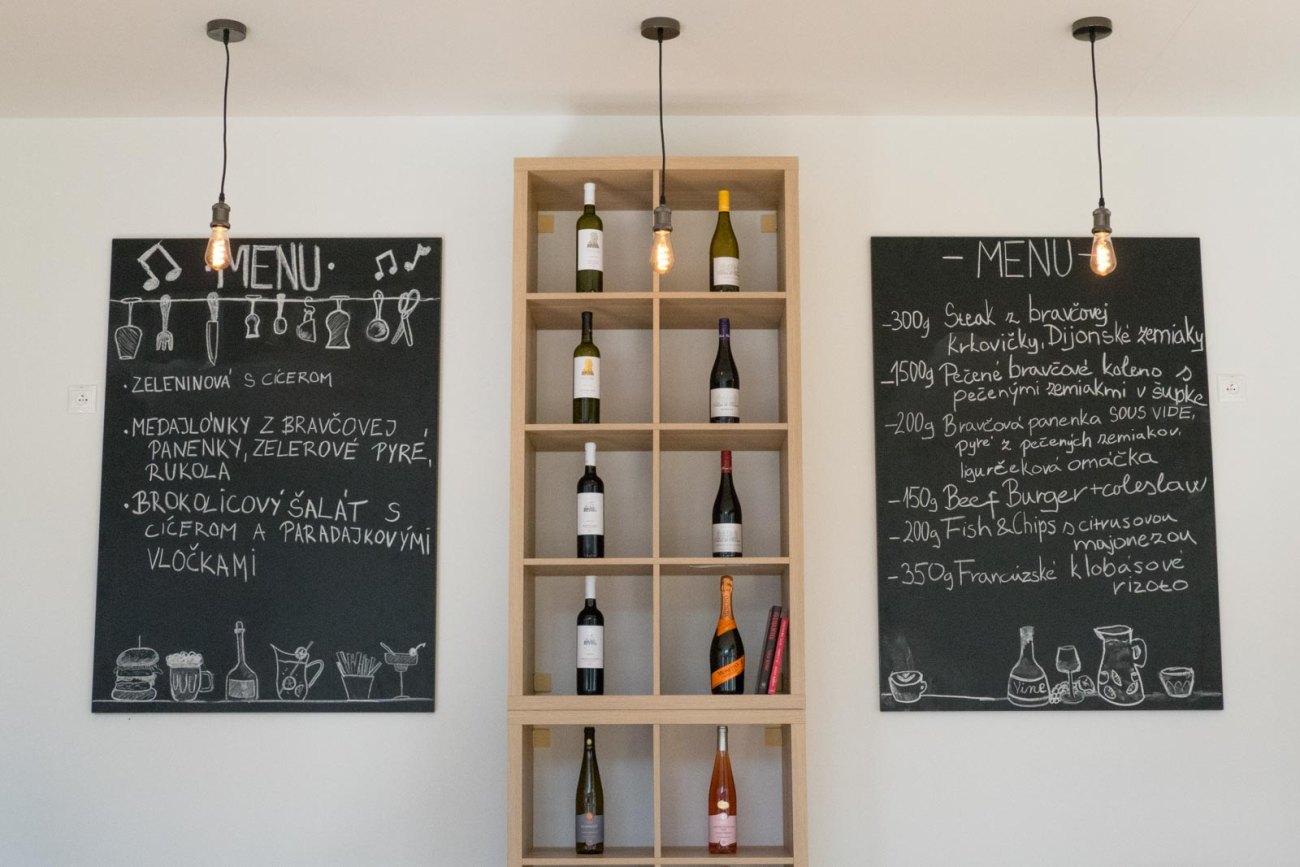 MENU
· ZELENINOVÁ S CÍCEROM
· MEDAJLÓNKY Z BRAVČOVEJ
PANENKY, ZELEROVÉ PYRÉ,
RUKOLA
· BROKOLICOVÝ ŠALÁT S
CÍCEROM A PARADAJKOVÝMI
VLOČKAMI
- MENU -
- 300g Steak z bravčovej
krkovičky, Dijonské zemiaky
- 1500g Pečené bravčové koleno s
pečenými zemiakmi v šupke
- 200g Bravčová panenka SOUS VIDE,
pyré z pečených zemiakov,
ligurčeková omáčka
- 150g Beef Burger + coleslaw
- 200g Fish & Chips s citrusovou
majonezou
- 350g Francúzské klobásové
rizoto
Vine